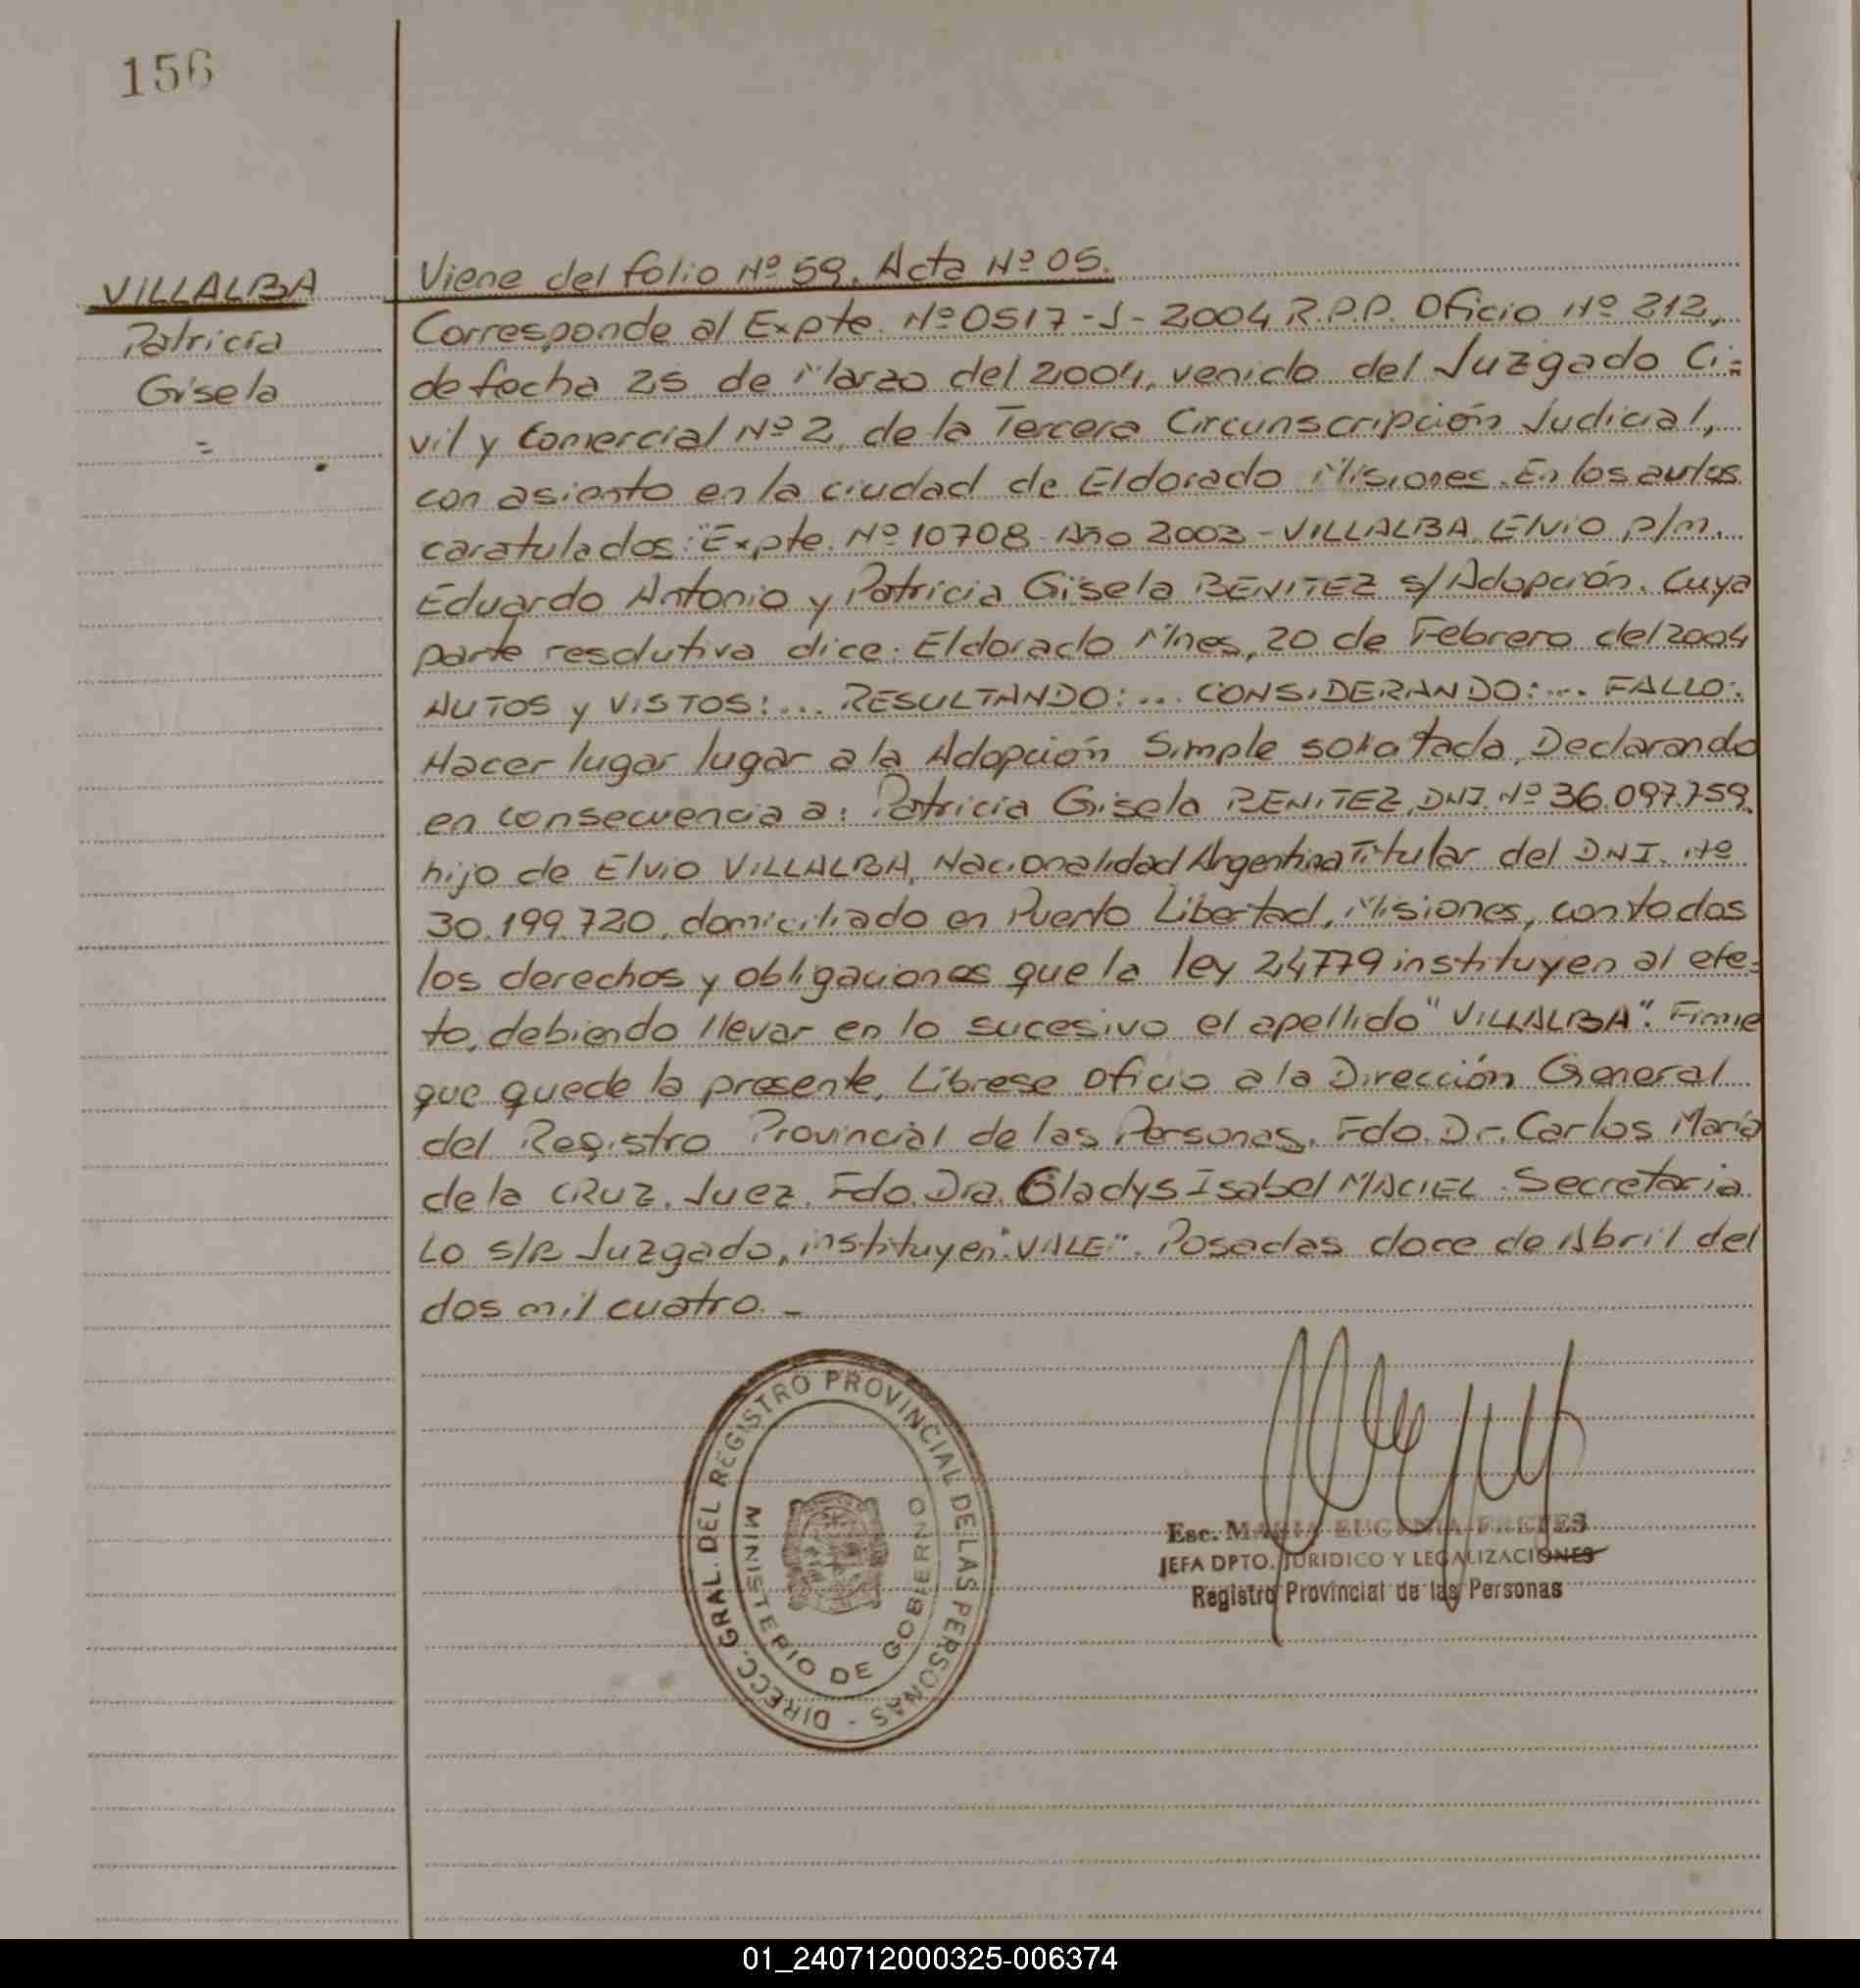 156
VILLALBA
Patricia
Gisela
=
Viene del folio Nº 59. Acta Nº 05.
Corresponde al Expte. Nº 0517-J-2004 R.P.P. Oficio Nº 212,
de fecha 25 de Marzo del 2004, venido del Juzgado Ci=
vil y Comercial Nº 2, de la Tercera Circunscripción Judicial,
con asiento en la ciudad de Eldorado Misiones. En los autos
caratulados: "Expte. Nº 10708 - Año 2003 - VILLALBA, Elvio p/m.
Eduardo Antonio y Patricia Gisela BENITEZ s/Adopción. Cuya
parte resolutiva dice: Eldorado Mnes, 20 de Febrero del 2004
AUTOS y VISTOS:... RESULTANDO:... CONSIDERANDO:... FALLO:
Hacer lugar lugar a la Adopción Simple solicitada, Declarando
en consecuencia a: Patricia Gisela BENITEZ, DNI. Nº 36.097.759.
hijo de Elvio VILLALBA, Nacionalidad Argentina Titular del DNI. Nº
30.199.720, domiciliado en Puerto Libertad, Misiones, con todos
los derechos y obligaciones que la ley 24779 instituyen al efe=
to, debiendo llevar en lo sucesivo el apellido "VILLALBA". Firme
que quede la presente, Líbrese oficio a la Dirección General
del Registro Provincial de las Personas. Fdo. Dr. Carlos María
de la CRUZ. Juez. Fdo. Dra. Gladys Isabel MACIEL. Secretaria
Lo s/R Juzgado, instituyen "VALE". Posadas doce de Abril del
dos mil cuatro. -
DIRECC. GRAL. DEL REGISTRO PROVINCIAL DE LAS PERSONAS -
MINISTERIO DE GOBIERNO
Esc. MARIA EUGENIA FRETES
JEFA DPTO. JURIDICO Y LEGALIZACIONES
Registro Provincial de las Personas
01_240712000325-006374